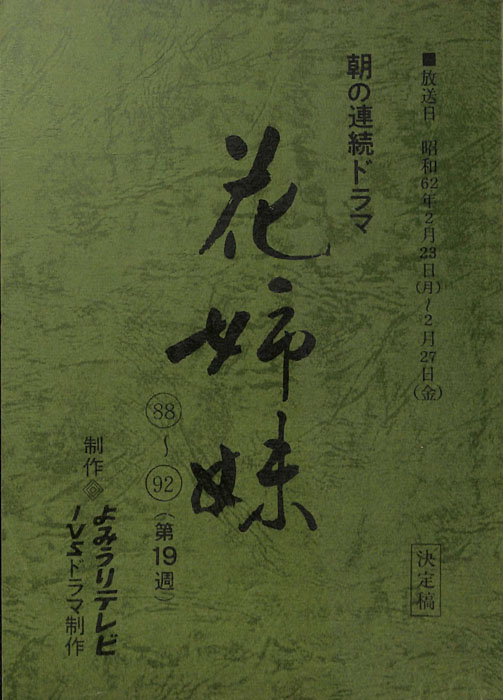 ■放送日 昭和62年2月23日(月)～2月27日(金)
朝の連続ドラマ
花姉妹
88～92(第19週)
決定稿
制作 よみうりテレビ
IVSドラマ制作